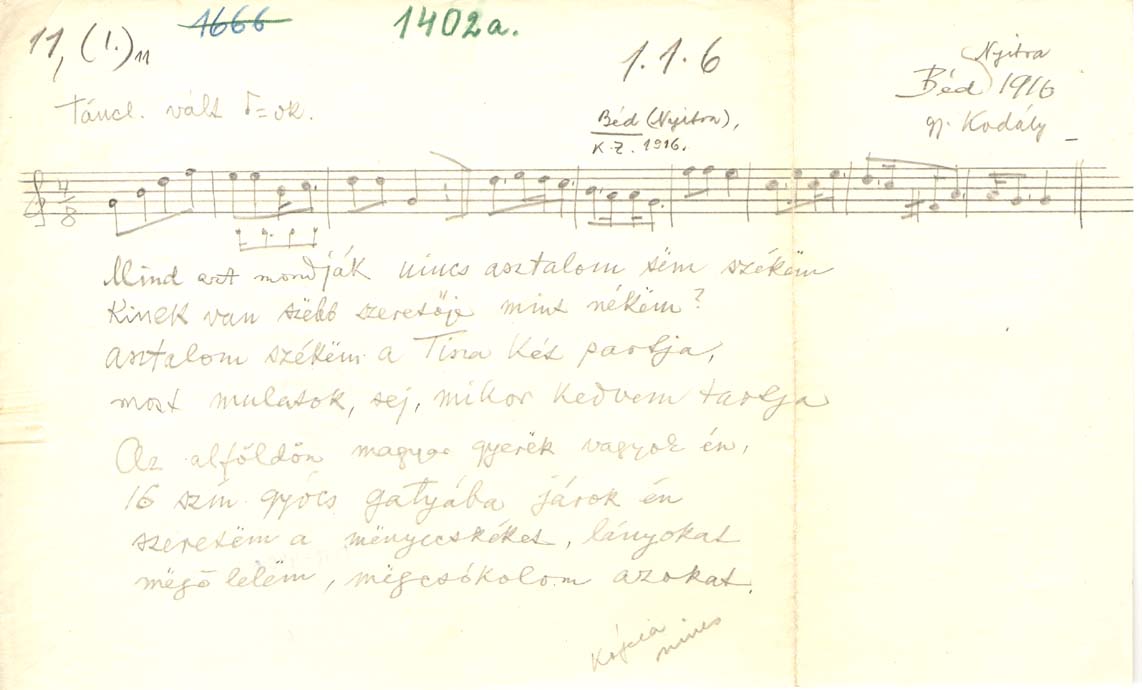 11, (1.) 11
1666
1402a.
1.1.6
Nyitra
Béd 1916
gy. Kodály
Táncl. vált =ok.
Béd (Nyitra),
K.Z. 1916.
4
8
Mind azt mondják nincs asztalom sëm székëm
Kinek van szëbb szeretője mint nékëm?
asztalom székëm a Tisza két partja,
most mulatok, sej, mikor kedvem tartja
Az alföldön magyar gyerëk vagyok én,
16 szím gyócs gatyába járok én
szeretëm a mënyecskéket, lányokat
mëgölelëm, mëgcsókolom azokat.
Kópia
nincs